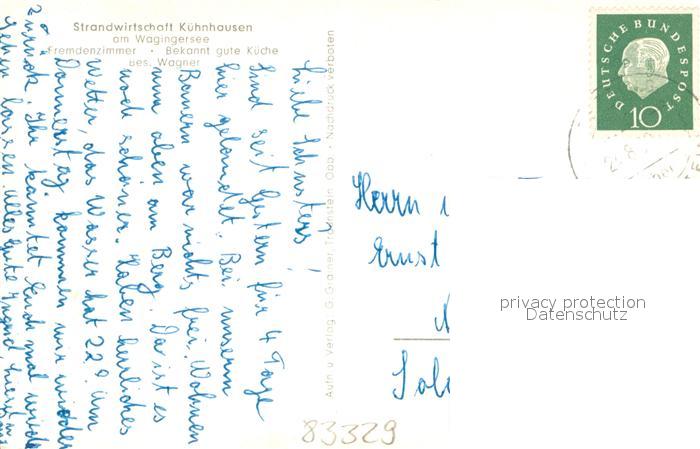 Strandwirtschaft Kühnhausen
am Wagingersee
Fremdenzimmer • Bekannt gute Küche
Bes. Wagner
Liebe Schusters!
Sind seit Gestern für 4 Tage
hier gelandet. Bei unserm
Bauern war nichts frei. Wohnen
nun oben am Berg. Da ist es
noch schöner. Haben herrliches
Wetter, das Wasser hat 22°. Am
Donnerstag kommen wir wieder
zurück. Ihr könntet Euch mal wieder
sehen lassen. Alles Gute Ingrid,
Aufn u Verlag G. Grainer, Traunstein Obb. • Nachdruck verboten
DEUTSCHE BUNDESPOST
10
Herrn
Ernst
privacy protection
Datenschutz
83329